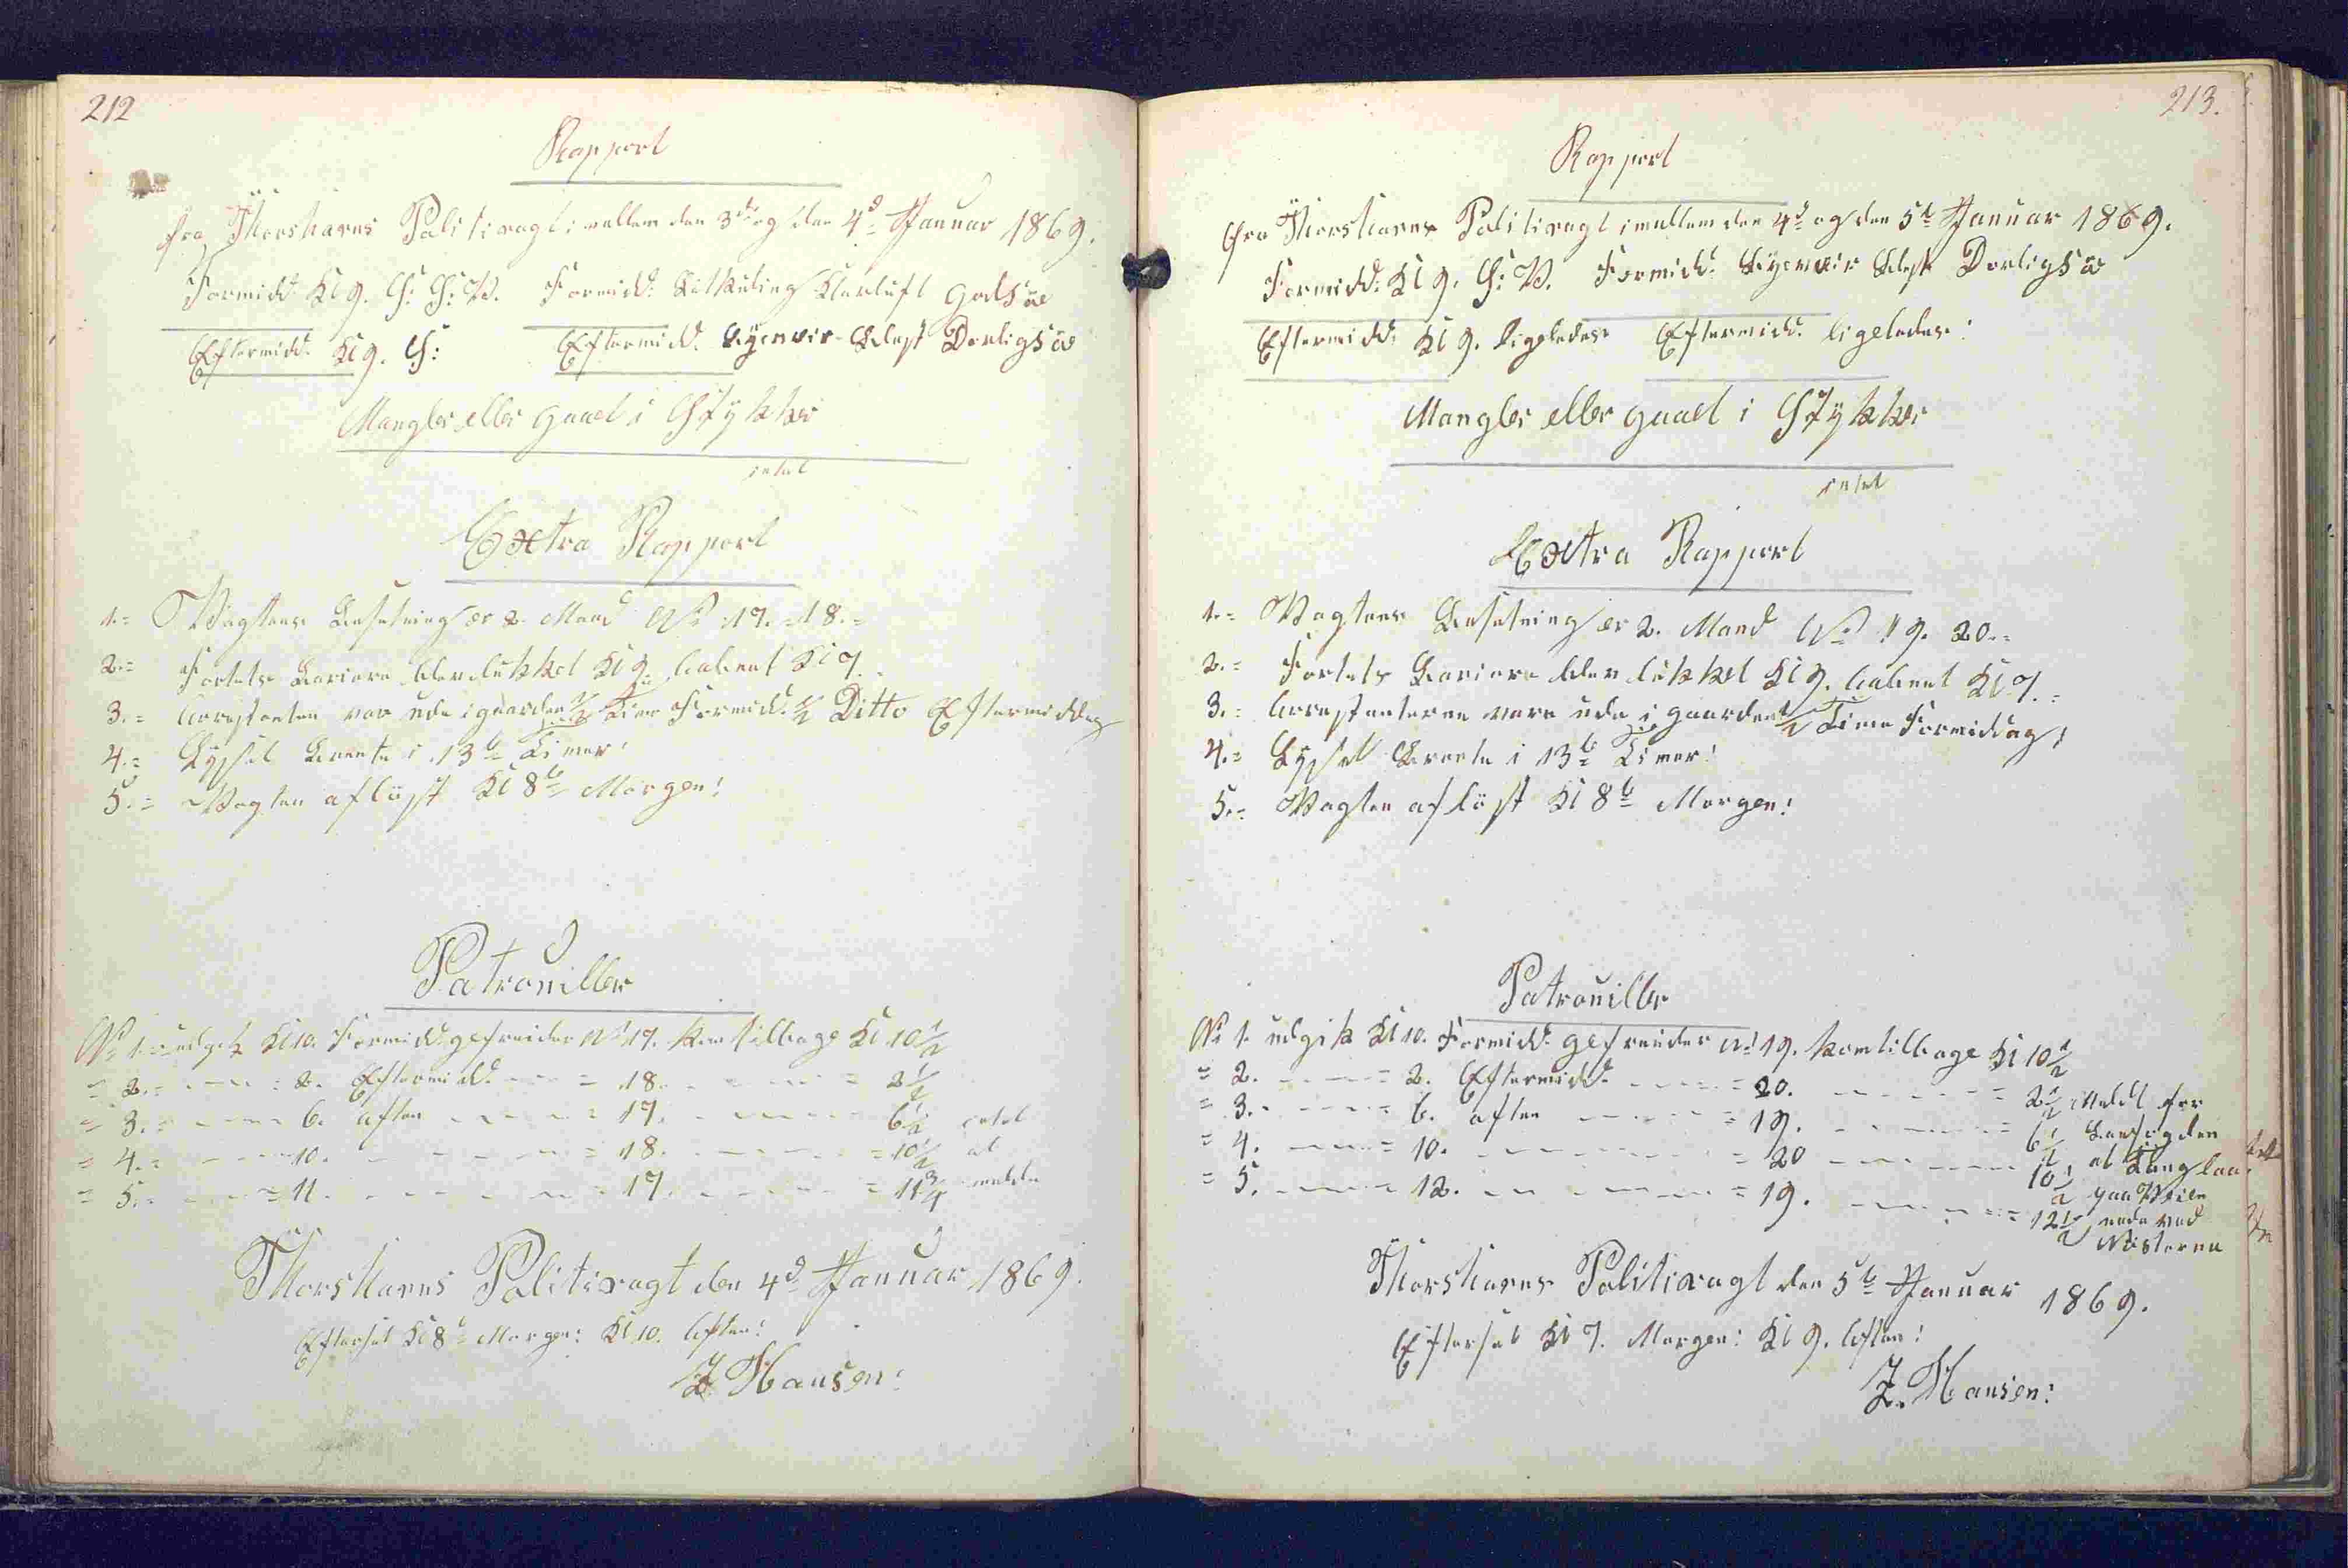 212
Rapport
fra Thorshavns Politivagt imellem den 3die og den 4d Januar 1869.
Formidd. Kl 9. S: S: V. Formidd: Kuling Klarluft God Søe
Eftermidd. Kl 9. S: Eftermidd. Bygeveir Blæst Dorlig Søe
Mangler eller Gaaet i Stykker
intet
Extra Rapport
1.= Vagtens Besetning er 2. Mand No 17.=18.=
2.= Fortets Bariere blev lukket Kl 9. aabnet Kl 7.
3.= Arrestanten var ude i gaarden 1/2 Time Formidd. 1/2 Ditto Eftermiddag
4.= Lyset brente i 13t Timer!
5.= Vagten afløst Kl 8te Morgen!
Patrouiller
No 1. udgik Kl 10. Formidd. gefreider No 17. kom tilbage Kl 10 1/2
= 2.= = 2. Eftermidd. = 18. = 2 1/2
= 3.= 6. aften = 17. 6 1/2 intet
= 4.= 10. = 18. = 10 1/2 at
= 5.= = 11. = 17. = 11 3/4 melde
Thorshavns Politivagt den 4d Januar 1869.
Efterset Kl 8t Morgen: Kl 10. Aften!
Z. Hansen:
213.
Rapport
fra Thorshavns Politivagt imellem den 4d og den 5t Januar 1869.
Formidd: Kl 9. S: V. Formidd. Bygeveir Blæst Dorlig Søe
Eftermidd. Kl 9. ligeledes Eftermidd. ligeledes!
Mangler eller gaaet i Stykker
intet
Extra Rapport
1.= Vagtens Besetning er 2. Mand No 19. 20.=
2.= Fortets Bariere blev lukket Kl 9. aabnet Kl 7.=
3.= Arrestanterne vare ude i gaarden 1/2 Time Formiddag!
4.= Lyset brente i 13te Timer!
5.= Vagten afløst Kl 8te Morgen!
Patrouiller
No 1. udgik Kl 10. Formidd. gefreider No 19. kom tilbage Kl 10 1/2
= 2. = 2. Eftermidd. = 20. = 2 1/2 Meldt for
= 3. = 6. aften = 19. = 6 1/2
= 4. = 10. = 20 10 1/2 at
= 5. = 12. = 19. = 12 1/2 nede ved
Nøsterne
Thorshavns Politivagt den 5te Januar 1869.
Efterset Kl 7. Morgen: Kl 9. Aften!
Z. Hansen: